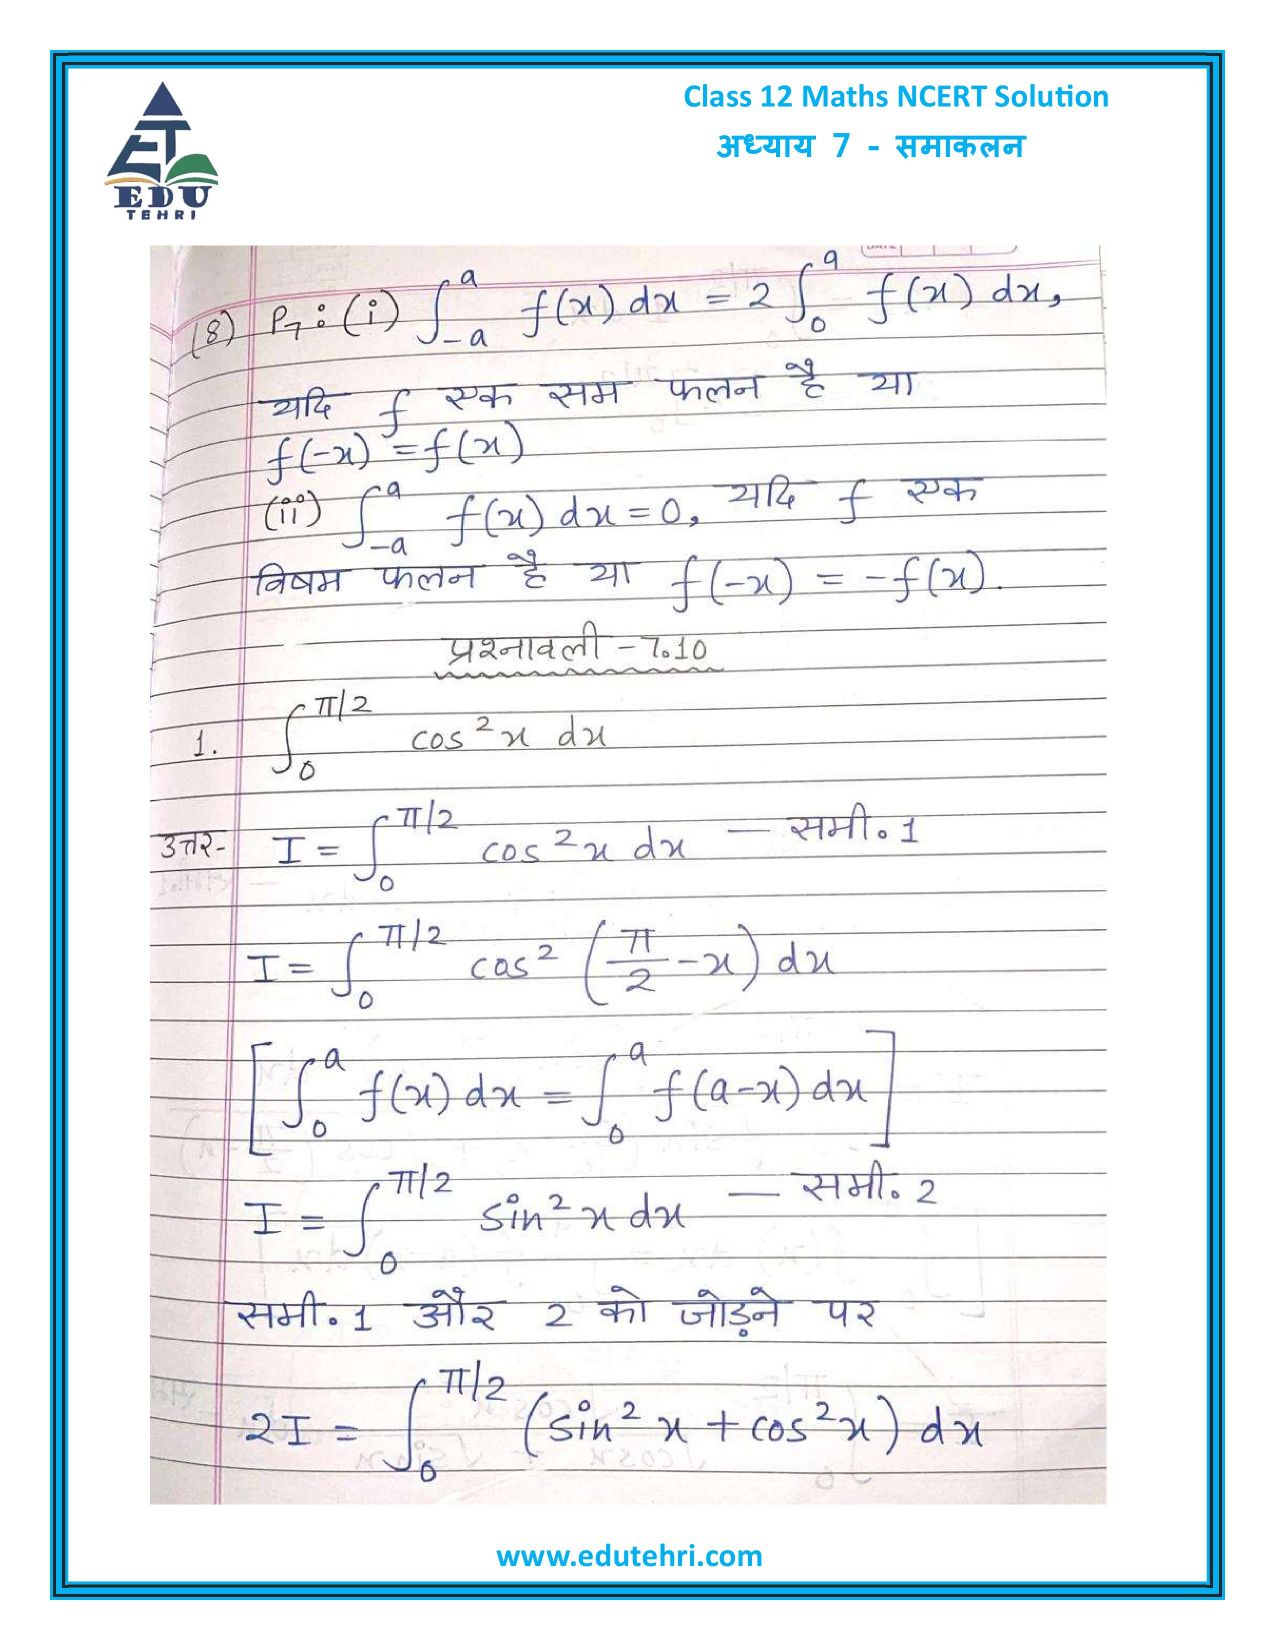 Class 12 Maths NCERT Solution
अध्याय 7 - समाकलन
EDU
TEHRI
(8) P₇ : (i) ∫₋ₐᵃ f(x) dx = 2 ∫₀ᵃ f(x) dx,
यदि f एक सम फलन है या
f(-x) = f(x)
(ii) ∫₋ₐᵃ f(x) dx = 0, यदि f एक
विषम फलन है या f(-x) = -f(x).
प्रश्नावली - 7.10
1. ∫₀^π/2 cos²x dx
उत्तर- I = ∫₀^π/2 cos²x dx — समी. 1
I = ∫₀^π/2 cos² (π/2 - x) dx
[∫₀ᵃ f(x) dx = ∫₀ᵃ f(a-x) dx]
I = ∫₀^π/2 sin²x dx — समी. 2
समी. 1 और 2 को जोड़ने पर
2I = ∫₀^π/2 (sin²x + cos²x) dx
www.edutehri.com